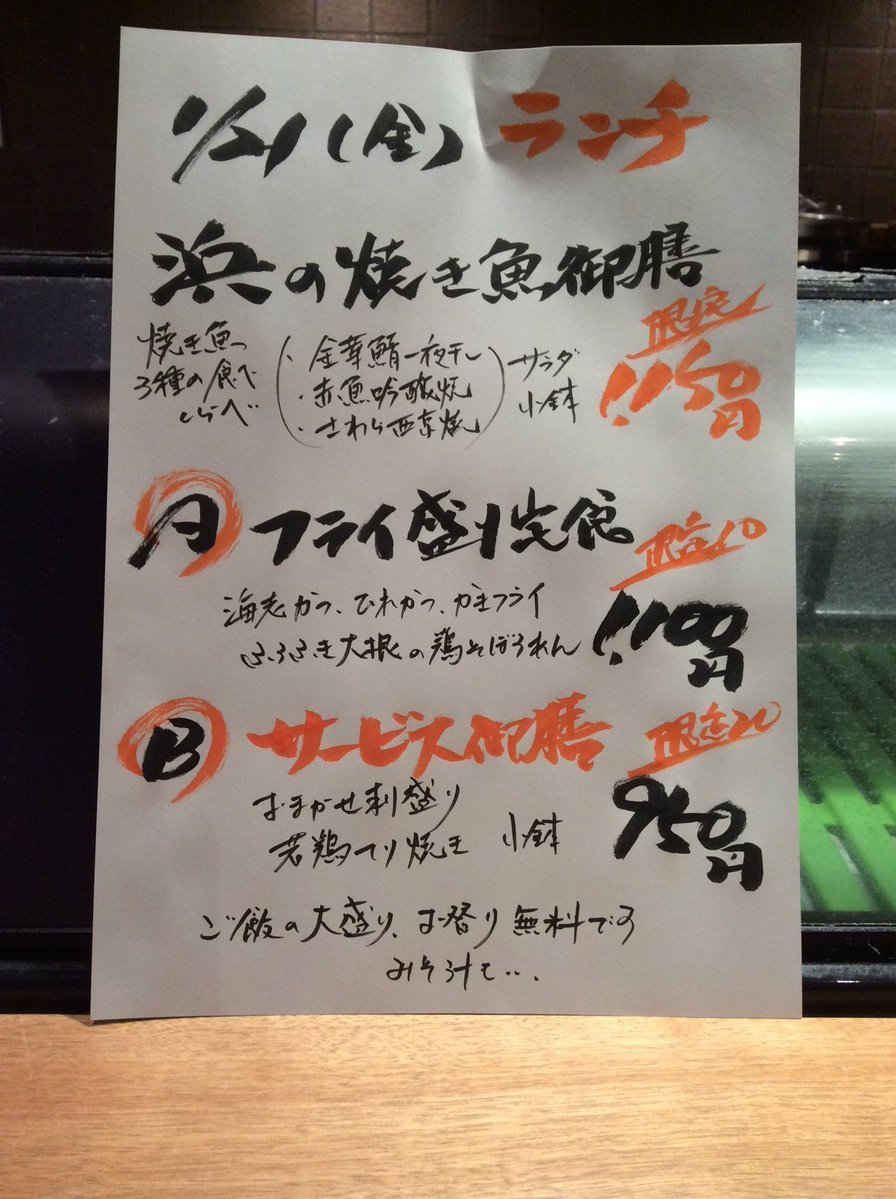 1/21(金)ランチ
浜の焼き魚御膳
限定
焼き魚
3種の食べ
くらべ
・金華鯖一夜干し
・赤魚吟醸焼
・さわら西京焼
サラダ
小鉢
1,150円
A フライ盛り定食
限定10
海老かつ、ひれかつ、かきフライ
ふろふき大根の鶏そぼろあん
1,100円
B サービス御膳
限定20
おまかせ刺盛り
若鶏てり焼き 小鉢
950円
ご飯の大盛り、お替り無料です
みそ汁も・・・